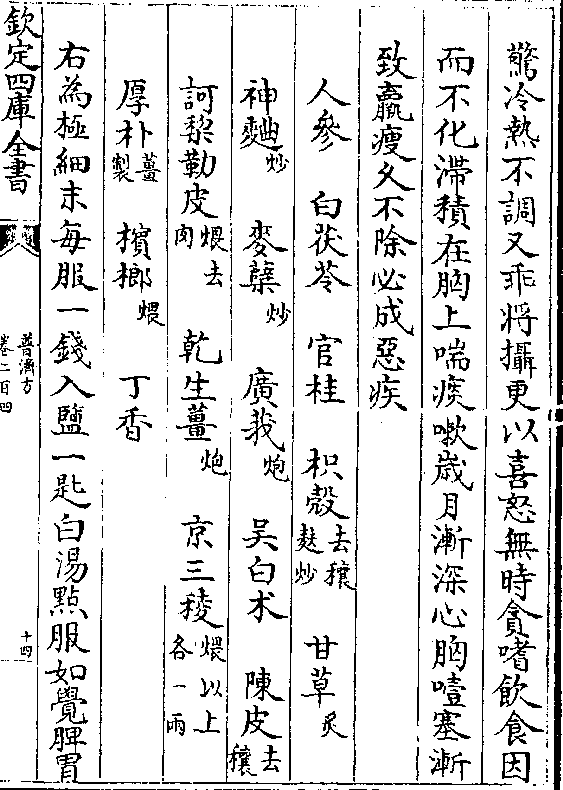 驚冷熱不調又乖將攝更以喜怒無時貪嗜飲食因
而不化滯積在胸上喘痰嗽歳月漸深心胸噎塞漸
致羸瘦久不除必成惡疾
人參 白茯苓 官桂 枳殼去穰麩炒 甘草炙
神麯炒 麥櫱炒 廣莪炮 吴白术 陳皮去穰
訶黎勒皮煨去肉 乾生薑炮 京三稜煨以上各一兩
厚朴薑製 檳榔煨 丁香
右為極細末每服一錢入鹽一匙白湯點服如覺脾胃
欽定四庫全書
普濟方
卷二百四
十四